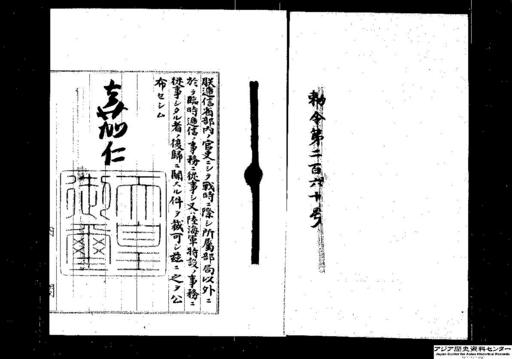 勅令第二百六十号
朕逓信省部内ノ官吏ニシテ戦時ニ際シ所属部局以外ニ
於テ臨時逓信ノ事務ニ従事シ又ハ陸海軍特設ノ事務ニ
従事シタル者ノ復帰ニ関スル件ヲ裁可シ茲ニ之ヲ公
布セシム
嘉仁
天皇
御璽
アジア歴史資料センター
Japan Center for Asian Historical Records